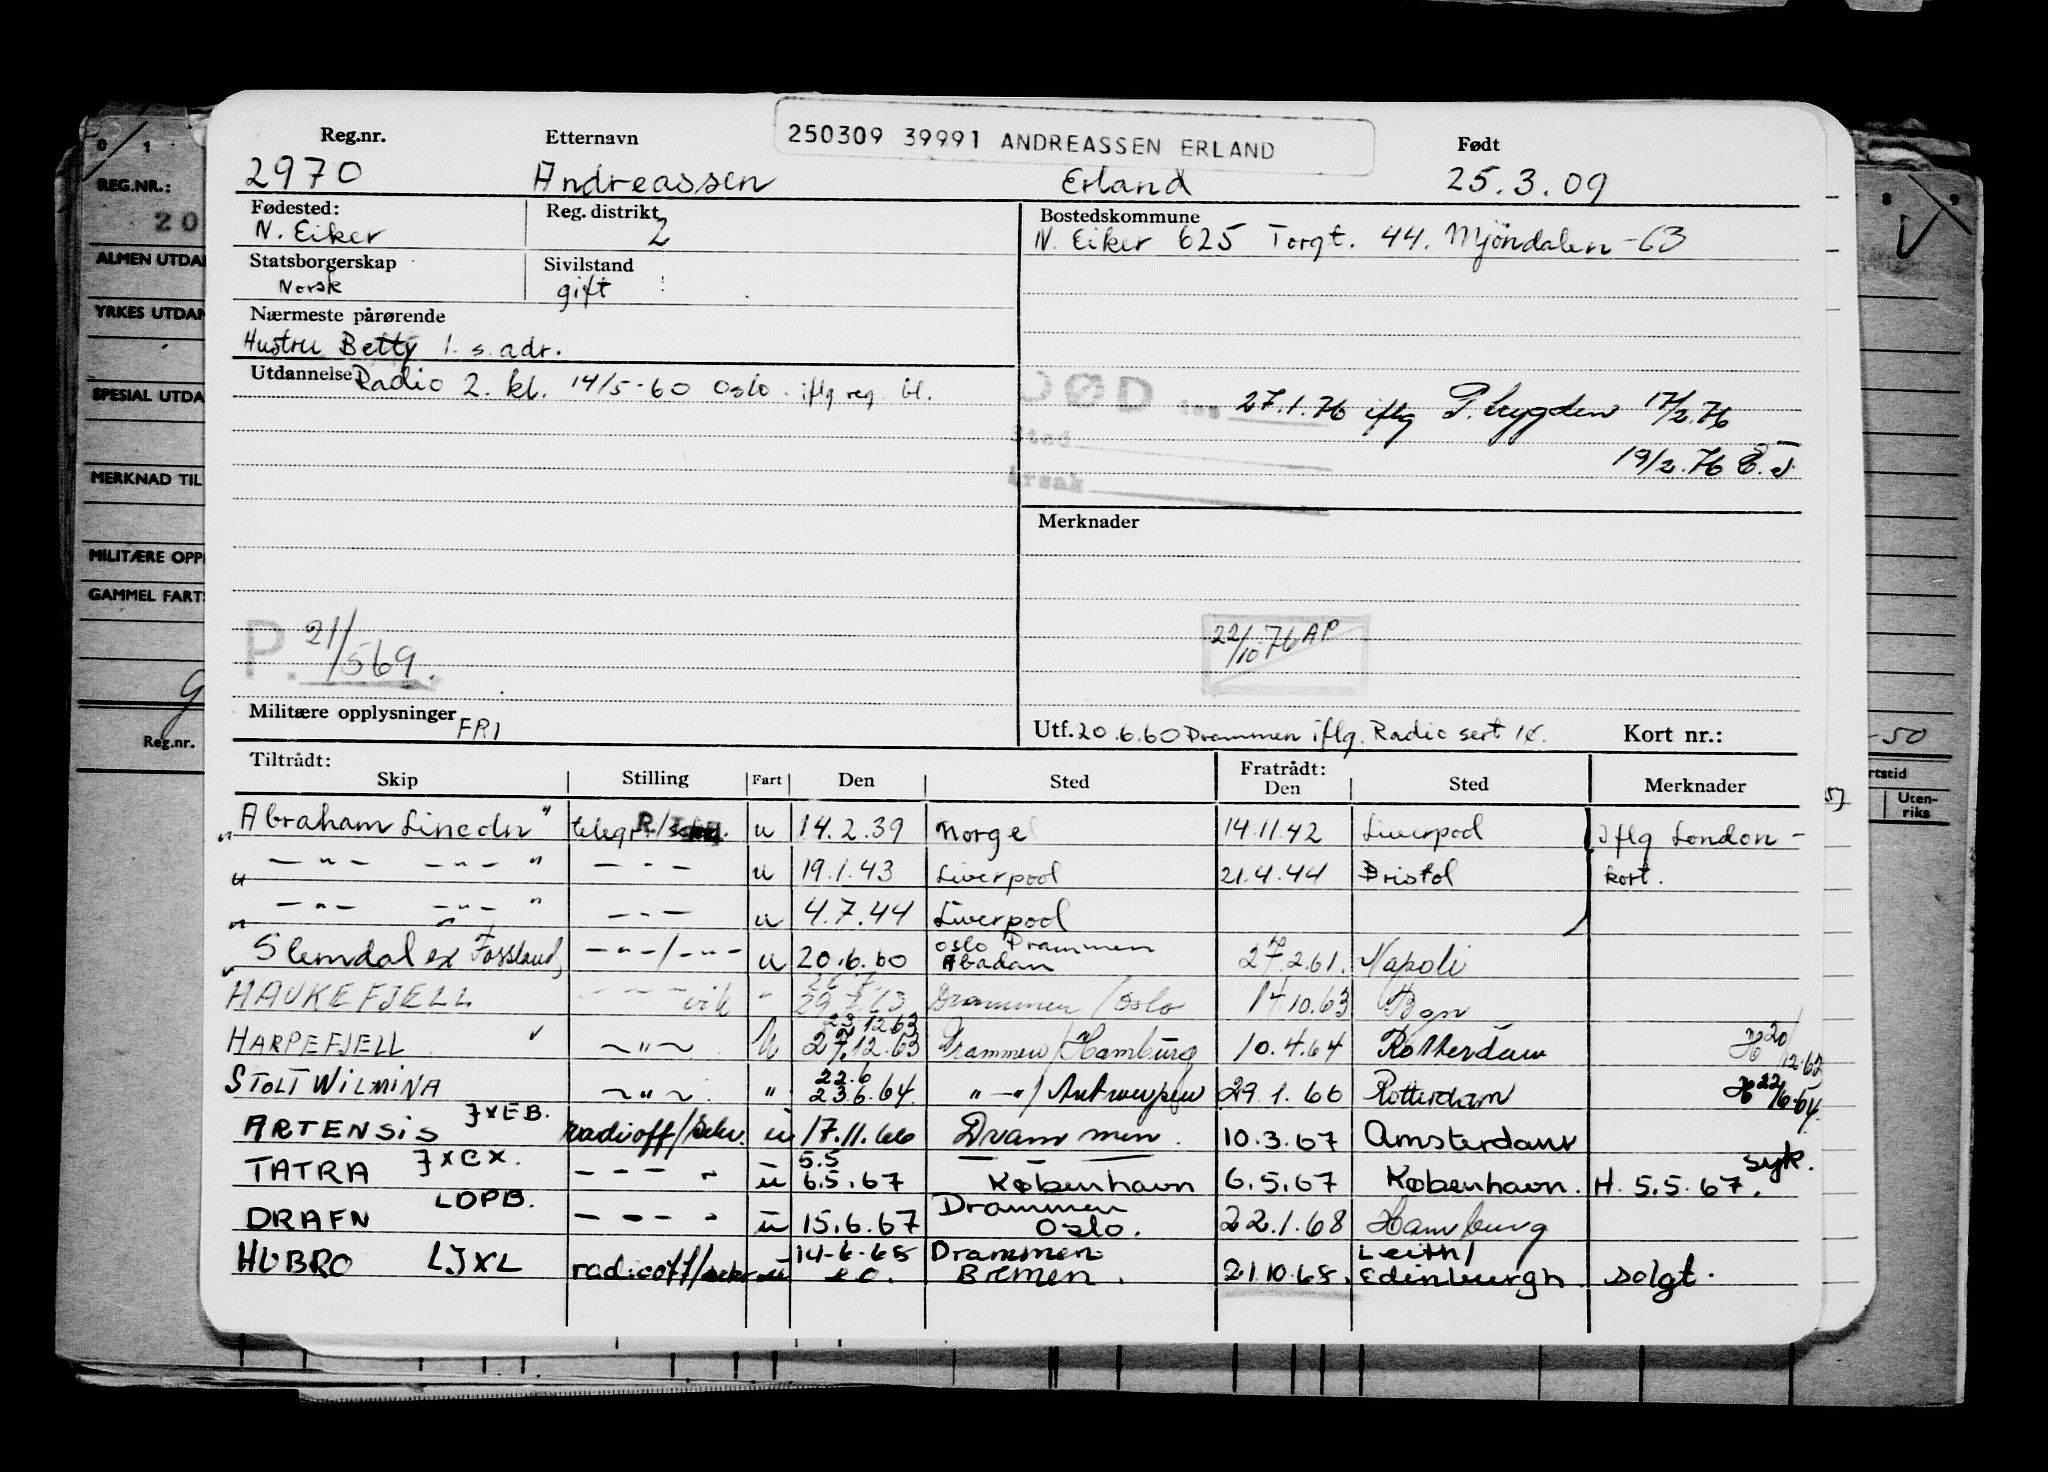 250309 39991 ANDREASSEN ERLAND
Reg.nr. Etternavn Født
2970 Andreassen Erland 25.3.09
Fødested: Reg. distrikt Bostedskommune
N. Eiker 2 N. Eiker 625 Torgt. 44. Mjöndalen -63
Statsborgerskap Sivilstand
Norsk gift
Nærmeste pårørende
Hustru Betty l. s. adr.
Utdannelse Radio 2. kl. 14/5-60 Oslo iflg reg. bl.
DØD 27.1.76 iflg 17/2.76
Sted
Årsak
19/2.76
Merknader
P. 21/569.
22/10 76 AP
Militære opplysninger FRI
Utf. 20.6.60 Drammen iflg. Radio sert Kort nr.:
Tiltrådt: Fratrådt:
Skip Stilling Fart Den Sted Den Sted Merknader
Abraham Lincoln " telegr. u 14.2.39 Norge 14.11.42 Liverpool Iflg London-
— " — — " — " — " — u 19.1.43 Liverpool 21.4.44 Bristol kort.
— " — — " — " — " — u 4.7.44 Liverpool
Slemdal ex Fossland, — " — / — " — u 20.6.60 Oslo Drammen Abadan 27.2.61. Napoli
HAUKEFJELL — " — vik " 29.7.63 Drammen / Oslo 14.10.63 Bgn
HARPEFJELL ~ " ~ u 23.12.63 27.12.63 Drammen / Hamburg 10.4.64 Rotterdam 20/12.63
STOLT WILMINA ~ " ~ " 22.6 23.6.64 " — " / Antwerpen 29.1.66 Rotterdam 22/6.64
ARTENSIS JXEB. radiooff/sekr. u 17.11.66 Drammen. 10.3.67 Amsterdam
TATRA JXCX. — — — " u 5.5 6.5.67 København 6.5.67 København. H. 5.5.67. syk.
DRAFN LDPB. — — — " u 15.6.67 Drammen Oslo. 22.1.68 Hamburg
HUBRO LJXL radiooff/sekr. u 14-6-68 Drammen Bremen. 21.10.68. Leith/ Edinburgh. solgt.
REG.NR.:
20
ALMEN UTDAN
YRKES UTDAN
SPESIAL UTDA
MERKNAD TIL
MILITÆRE OPPL
GAMMEL FARTS
Reg.nr.
-50
rtstid
Uten-
riks